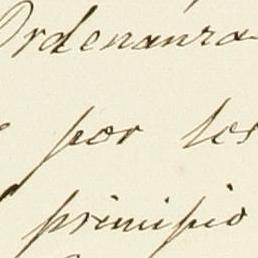 Ordenanza
por los
principio